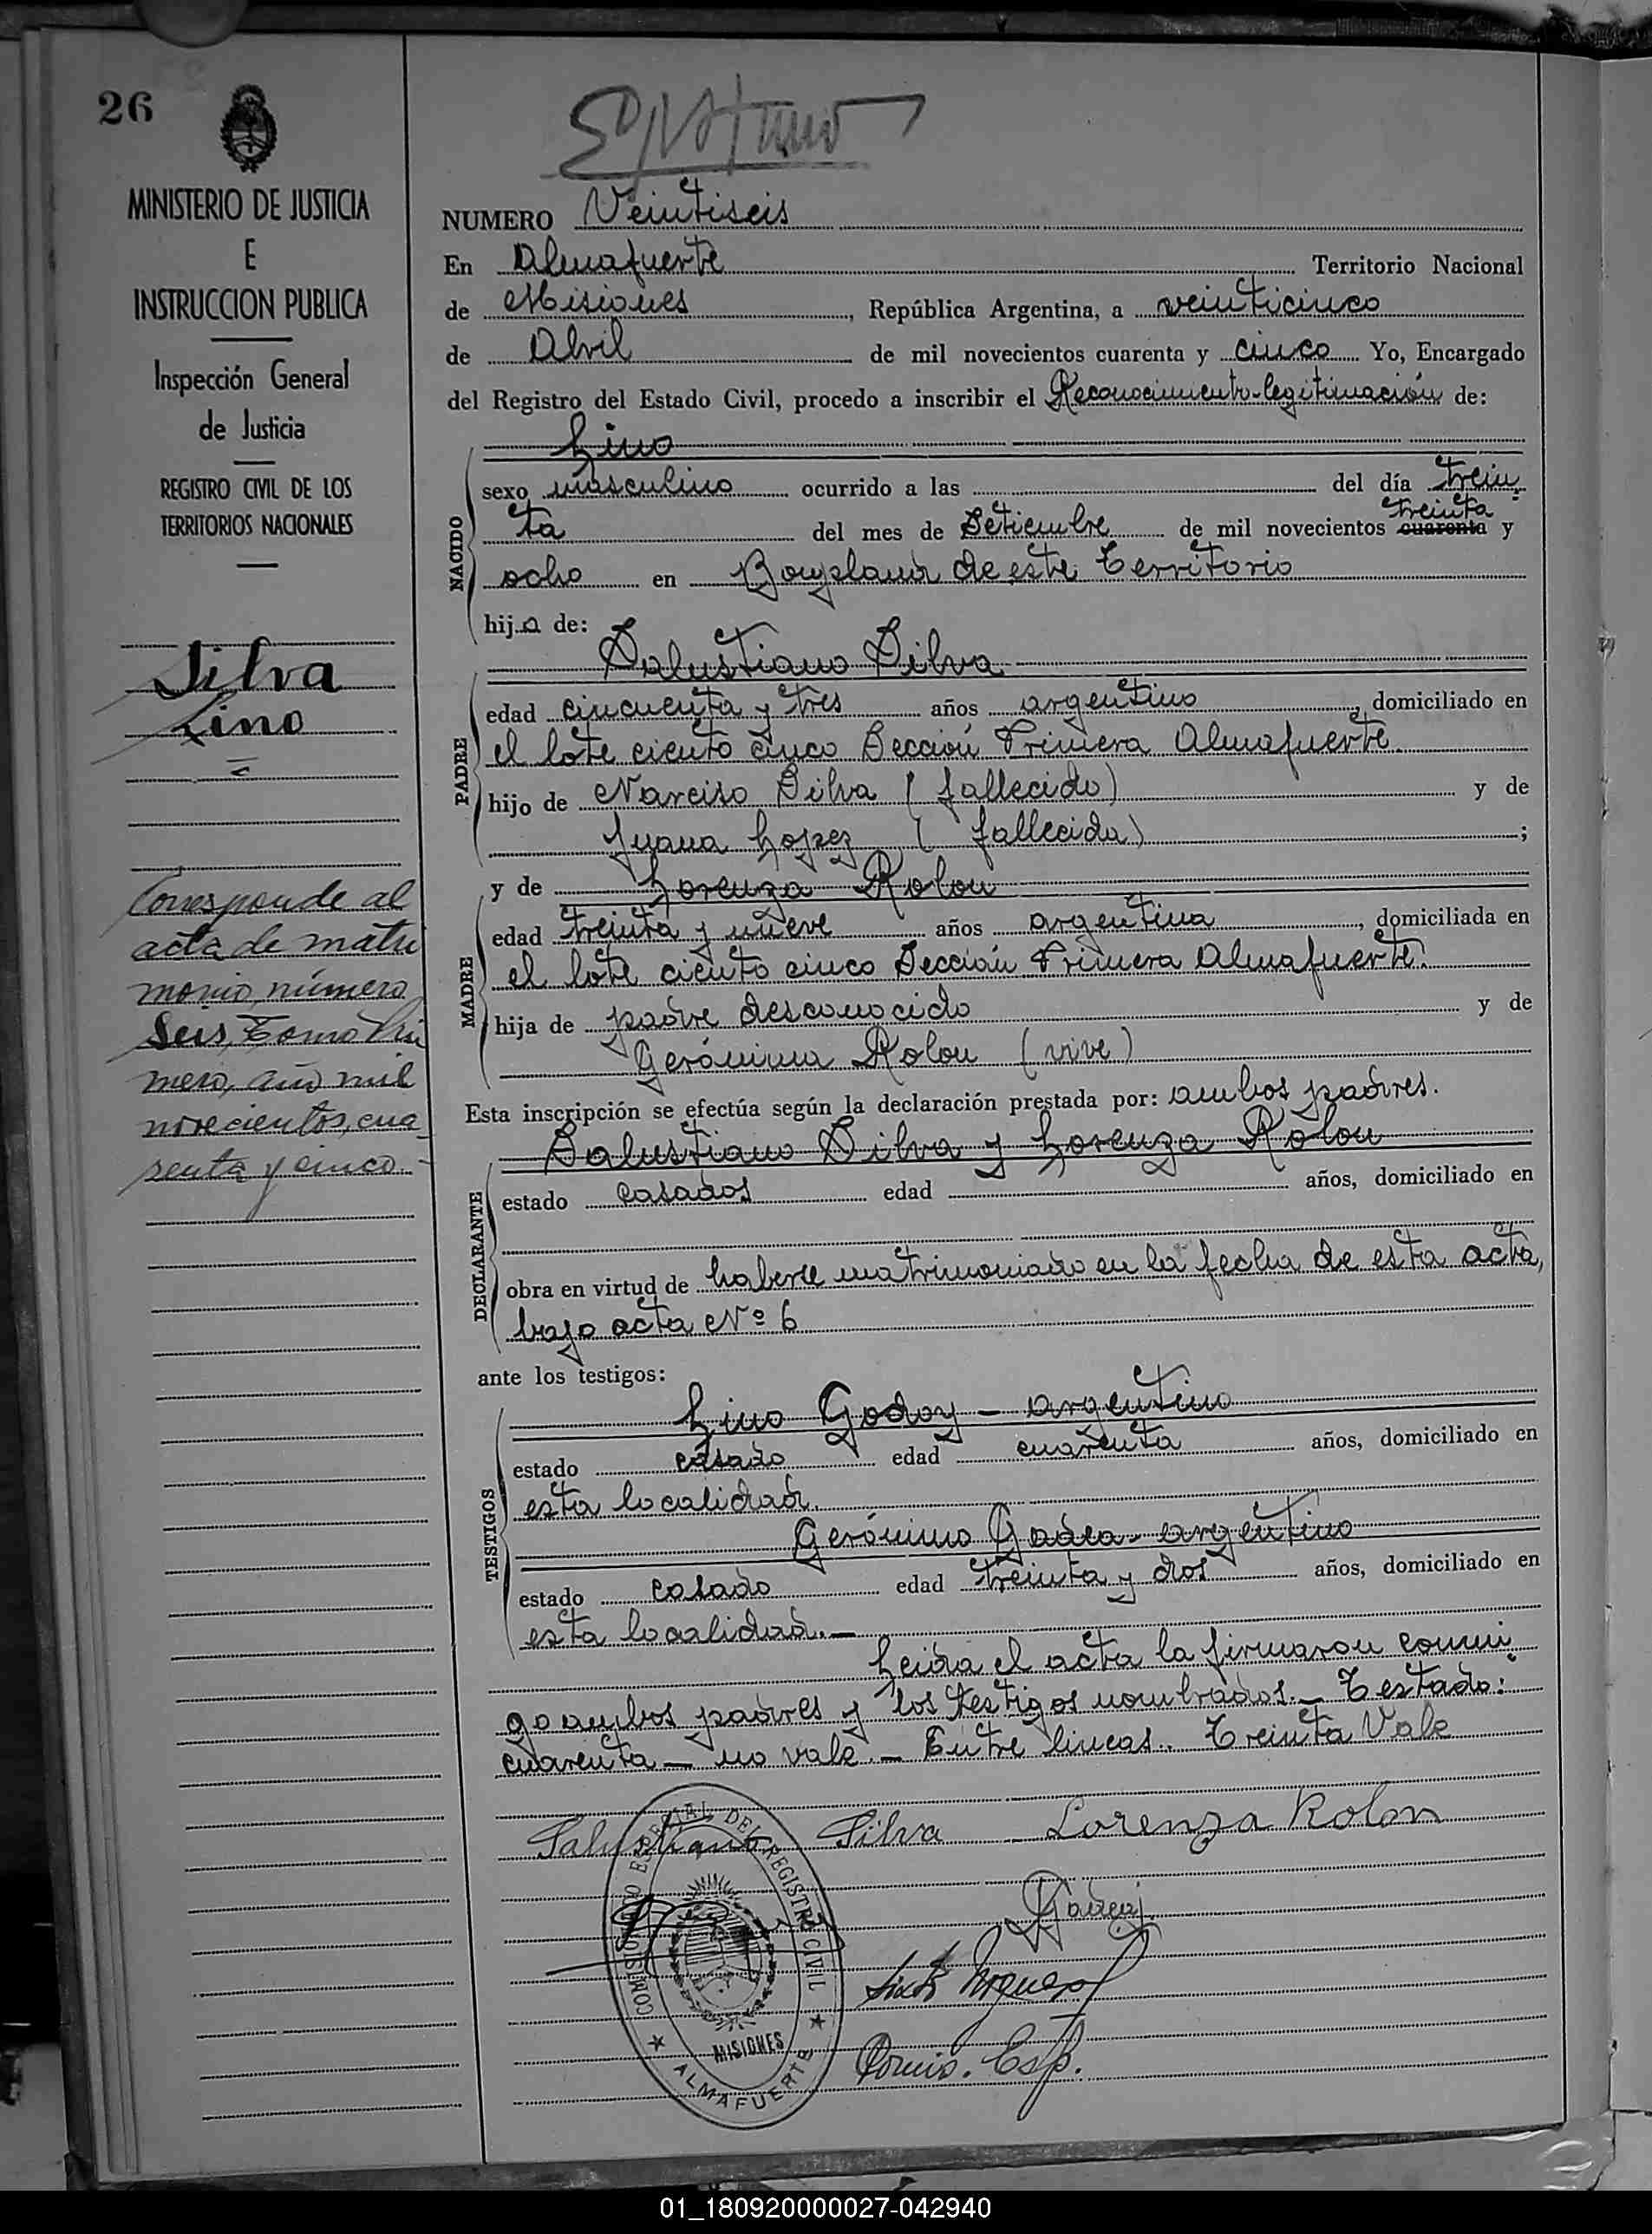 26
MINISTERIO DE JUSTICIA
E
INSTRUCCION PUBLICA
Inspección General
de Justicia
REGISTRO CIVIL DE LOS
TERRITORIOS NACIONALES
Silva
Lino
Corresponde al
acta de matri
monio, número
Seis, Tomo Pri
mero, año mil
novecientos, cua
renta y cinco.-
NUMERO Veintiseis
En Almafuerte Territorio Nacional
de Misiones, República Argentina, a veinticinco
de Abril de mil novecientos cuarenta y cinco Yo, Encargado
del Registro del Estado Civil, procedo a inscribir el Reconocimiento-legitimación de:
Lino
NACIDO
sexo masculino ocurrido a las del día trein
treinta
ta del mes de Setiembre de mil novecientos cuarenta y
ocho en Bonpland de este Territorio
hijo de:
Salustiano Silva
PADRE
edad cincuenta y tres años argentino, domiciliado en
el lote ciento cinco Sección Primera Almafuerte
hijo de Narciso Silva (fallecido) y de
Juana Lopez (fallecida);
y de Lorenza Rolon
MADRE
edad treinta y nueve años argentina, domiciliada en
el lote ciento cinco Sección Primera Almafuerte.
hija de padre desconocido y de
Gerónima Rolon (vive)
Esta inscripción se efectúa según la declaración prestada por: ambos padres.
Salustiano Silva y Lorenza Rolon
DECLARANTE
estado casados edad años, domiciliado en
obra en virtud de haberse matrimoniado en la fecha de esta acta,
bajo acta Nº 6
ante los testigos:
Lino Godoy - argentino
TESTIGOS
estado casado edad cuarenta años, domiciliado en
esta localidad.
Gerónimo Gadea - argentino
estado casado edad treinta y dos años, domiciliado en
esta localidad.-
Leida el acta la firmaron conmi
go ambos padres y los testigos nombrados.- Testado:
cuarenta - no vale.- Entre lineas.. Treinta Vale
Salustiano Silva Lorenza Rolon
Gadea
Comis. Esp.
COMISIONADO ESPECIAL DEL REGISTRO CIVIL
MISIONES
★ ALMAFUERTE ★
01_180920000027-042940